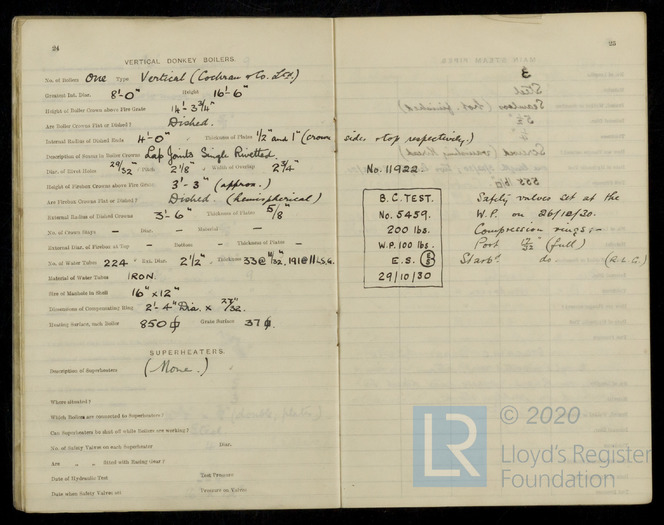 24
VERTICAL DONKEY BOILERS.
No. of Boilers One Type Vertical (Cochran & Co. Ltd.)
Greatest Int. Diar. 8'-0" Height 16'-6"
Height of Boiler Crown above Fire Grate 14'-3¾"
Are Boiler Crowns Flat or Dished? Dished.
Internal Radius of Dished Ends 4'-0" Thickness of Plates ½" and 1" (crown sides & top respectively.)
Description of Seams in Boiler Crowns Lap Joints Single Rivetted.
Diar. of Rivet Holes 29/32" Pitch 2⅛" Width of Overlap 2¾"
Height of Firebox Crowns above Fire Grate 3'-3" (approx.)
Are Firebox Crowns Flat or Dished? Dished. (hemispherical)
External Radius of Dished Crowns 3'-6" Thickness of Plates 5/8"
No. of Crown Stays — Diar. — Material —
External Diar. of Firebox at Top — Bottom — Thickness of Plates —
No. of Water Tubes 224 Ext. Diar. 2½" Thickness 33 @ 11/32", 191 @ 11 L.S.G.
Material of Water Tubes IRON.
Size of Manhole in Shell 16" x 12"
Dimensions of Compensating Ring 2'-4" Dia. x 27/32"
Heating Surface, each Boiler 850 ф Grate Surface 37 ф.
SUPERHEATERS.
Description of Superheaters (None.)
Where situated?
Which Boilers are connected to Superheaters?
Can Superheaters be shut off while Boilers are working?
No. of Safety Valves on each Superheater Diar.
Are " " fitted with Easing Gear?
Date of Hydraulic Test Test Pressure
Date when Safety Valves set Pressure on Valves
25
No. 11922
B.C. TEST.
No. 5459.
200 lbs.
W.P. 100 lbs.
E.S.
29/10/30
Safety valves set at the
W.P. on 26/12/30.
Compression rings :-
Port (full)
Starbd. do
© 2020
LR
Lloyd's Register
Foundation